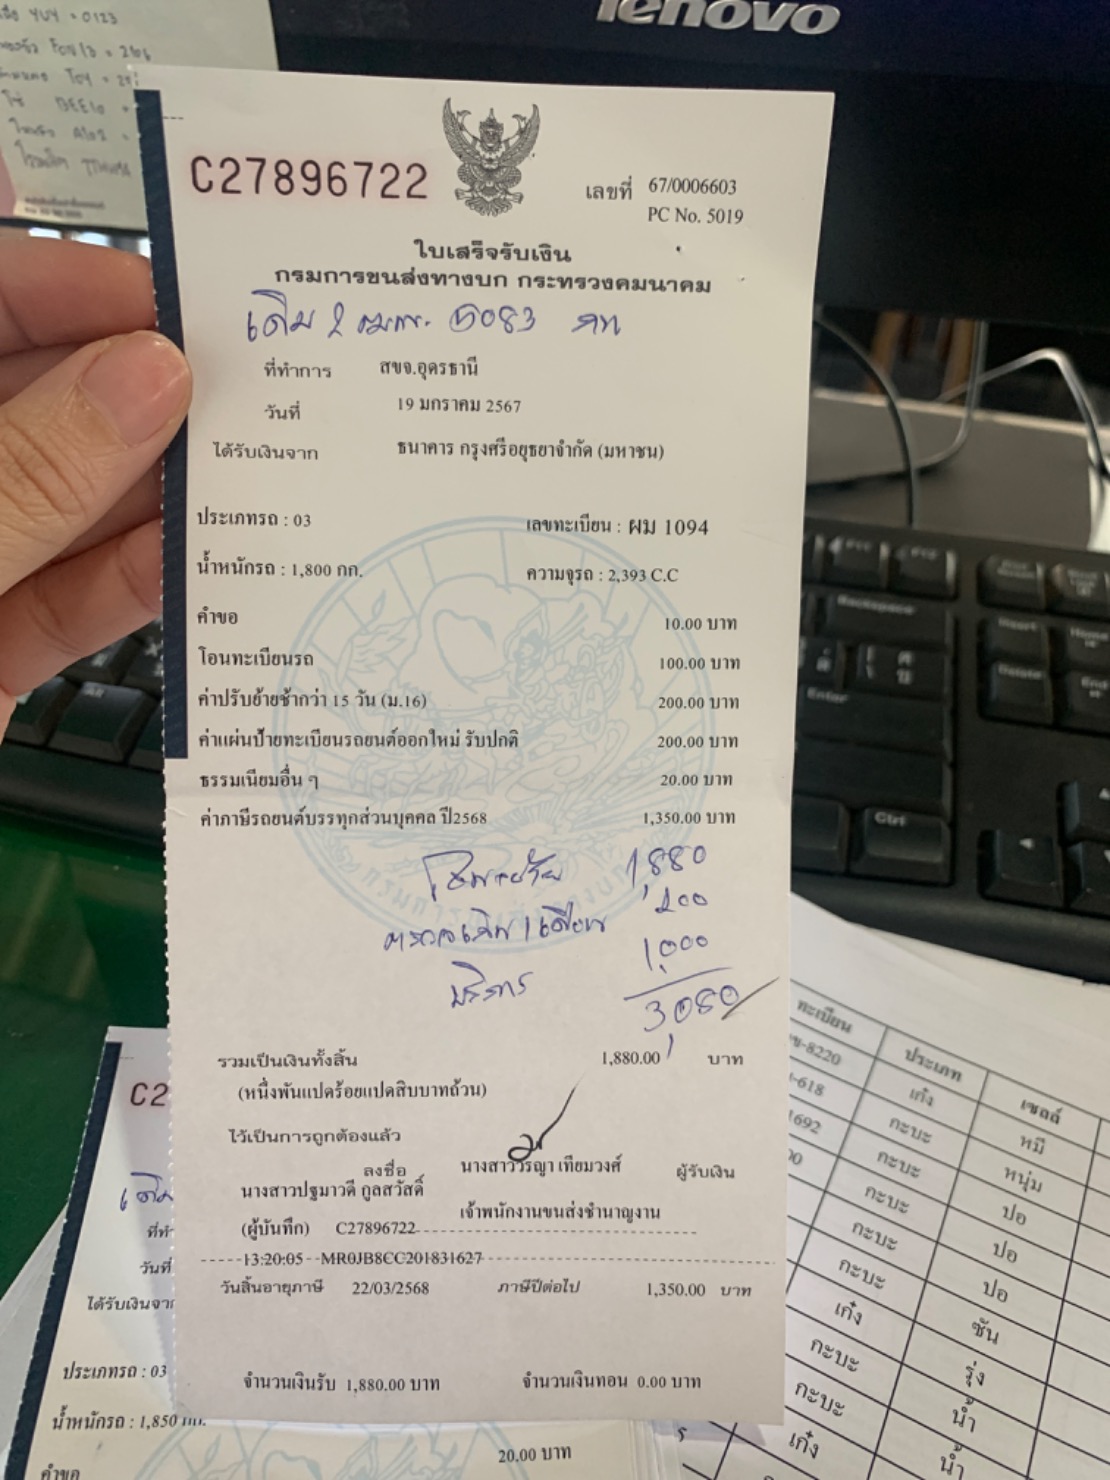 lenovo
YUY = 0123
C27896722
เลขที่ 67/0006603
PC No. 5019
ใบเสร็จรับเงิน
กรมการขนส่งทางบก กระทรวงคมนาคม
เดิม 2 ฒฌ. 5083 กท
ที่ทำการ สขจ.อุดรธานี
วันที่ 19 มกราคม 2567
ได้รับเงินจาก ธนาคาร กรุงศรีอยุธยาจำกัด (มหาชน)
ประเภทรถ : 03 เลขทะเบียน : ผม 1094
น้ำหนักรถ : 1,800 กก. ความจุรถ : 2,393 C.C
คำขอ 10.00 บาท
โอนทะเบียนรถ 100.00 บาท
ค่าปรับย้ายช้ากว่า 15 วัน (ม.16) 200.00 บาท
ค่าแผ่นป้ายทะเบียนรถยนต์ออกใหม่ รับปกติ 200.00 บาท
ธรรมเนียมอื่น ๆ 20.00 บาท
ค่าภาษีรถยนต์บรรทุกส่วนบุคคล ปี2568 1,350.00 บาท
1,880
200
1,000
บริการ
3,080
รวมเป็นเงินทั้งสิ้น 1,880.00 บาท
(หนึ่งพันแปดร้อยแปดสิบบาทถ้วน)
ไว้เป็นการถูกต้องแล้ว
ลงชื่อ นางสาววิรญา เทียมวงศ์ ผู้รับเงิน
นางสาวปฐมาวดี กูลสวัสดิ์
เจ้าพนักงานขนส่งชำนาญงาน
(ผู้บันทึก) C27896722
13:20:05 MR0JB8CC201831627
วันสิ้นอายุภาษี 22/03/2568 ภาษีปีต่อไป 1,350.00 บาท
จำนวนเงินรับ 1,880.00 บาท จำนวนเงินทอน 0.00 บาท
C2
เดิม
ที่ทำ
วันที่
ได้รับเงินจาก
ประเภทรถ : 03
น้ำหนักรถ : 1,850 กก.
คำขอ 20.00 บาท
ทะเบียน ประเภท เซลล์
-8220 เก๋ง หมี
-618 กะบะ หนุ่ม
1692 กะบะ ปอ
กะบะ ปอ
กะบะ ปอ
กะบะ ซัน
เก๋ง รุ่ง
กะบะ น้ำ
กะบะ น้ำ
เก๋ง